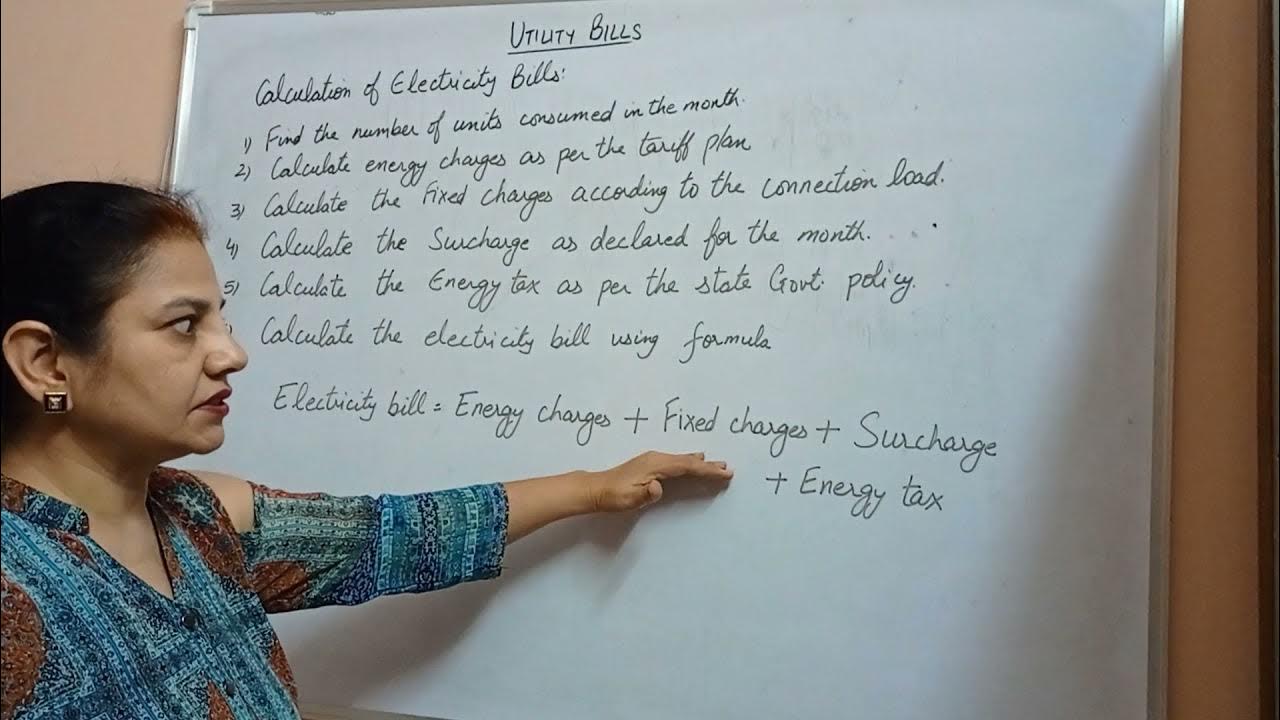 UTILITY BILLS
Calculation of Electricity Bills:
1) Find the number of units consumed in the month.
2) Calculate energy charges as per the tariff plan
3) Calculate the Fixed charges according to the connection load.
4) Calculate the Surcharge as declared for the month.
5) Calculate the Energy tax as per the state Govt. policy.
Calculate the electricity bill using formula
Electricity bill = Energy charges + Fixed charges + Surcharge
+ Energy tax